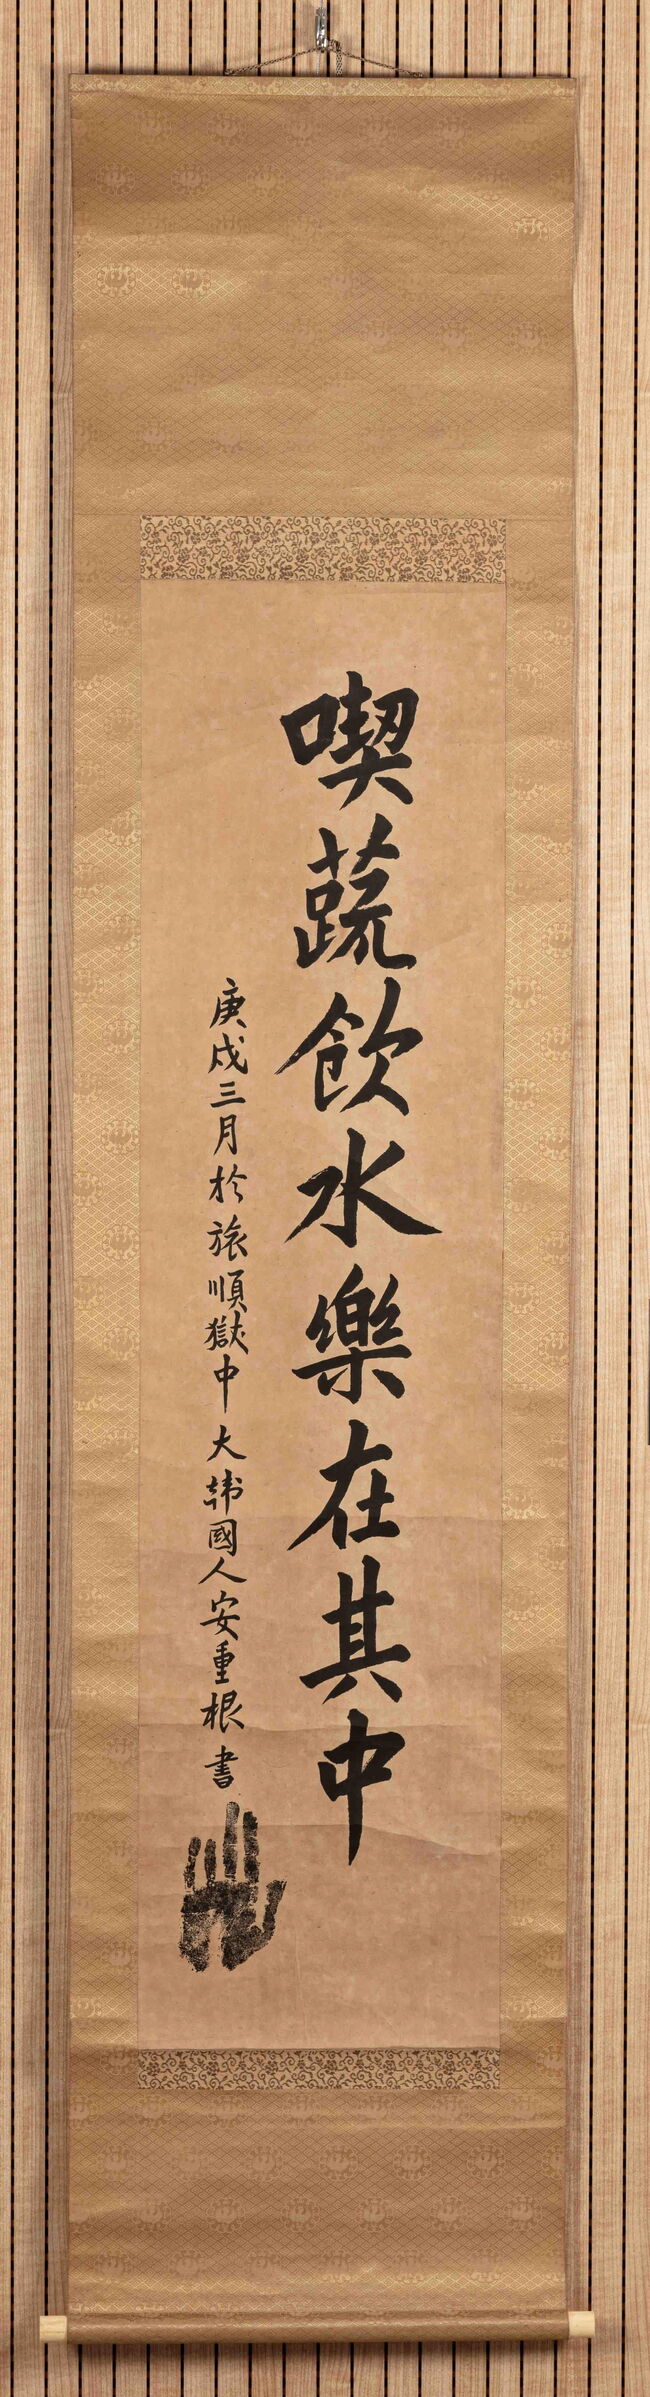 喫蔬飮水樂在其中
庚戌三月於旅順獄中 大韓國人 安重根 書